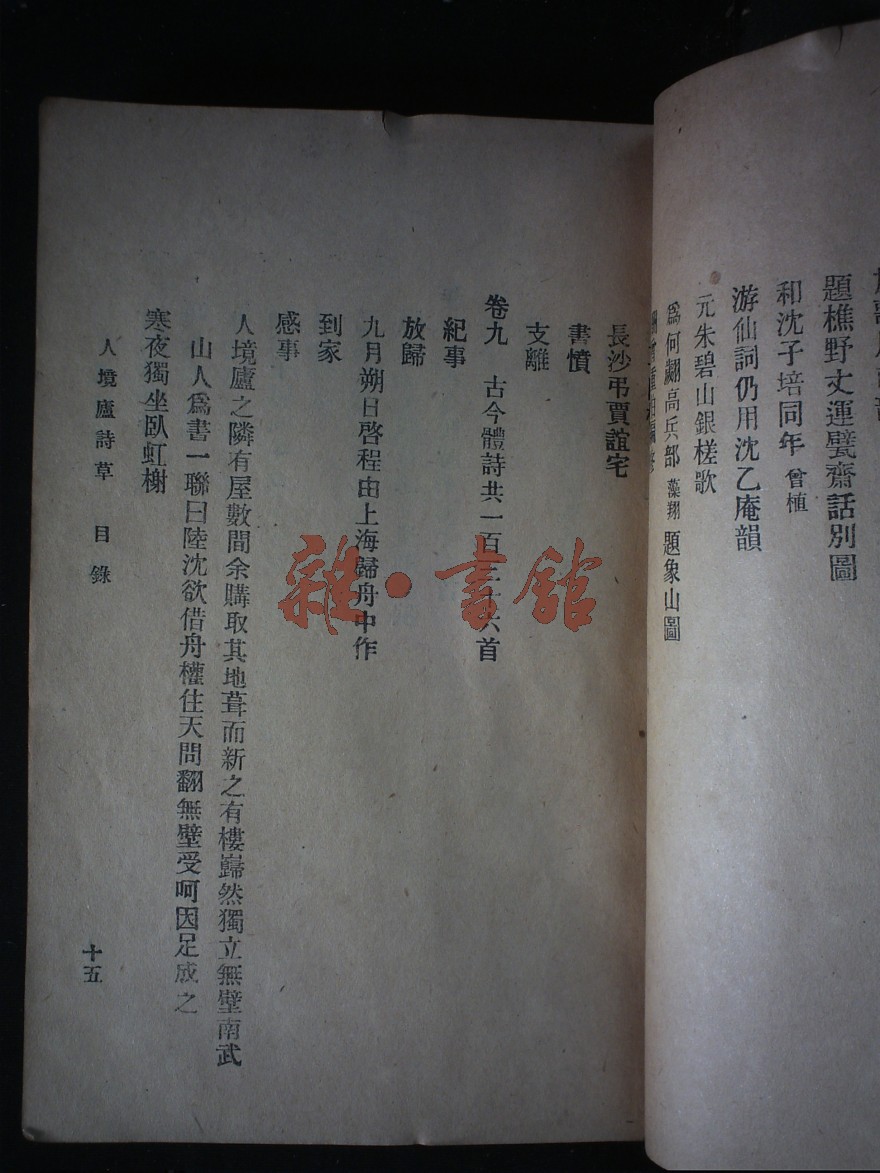 題樵野丈運甓齋話別圖
和沈子培同年 曾植
游仙詞仍用沈乙庵韻
元朱碧山銀槎歌
爲何翽高兵部 藻翔 題象山圖
長沙弔賈誼宅
書憤
支離
卷九 古今體詩共一百三十六首
紀事
放歸
九月朔日啓程由上海歸舟中作
到家
感事
人境廬之隣有屋數間余購取其地葺而新之有樓巋然獨立無壁南武
山人爲書一聯曰陸沈欲借舟權住天問翻無壁受呵因足成之
寒夜獨坐臥虹榭
人境廬詩草 目錄
十五
雜·書館